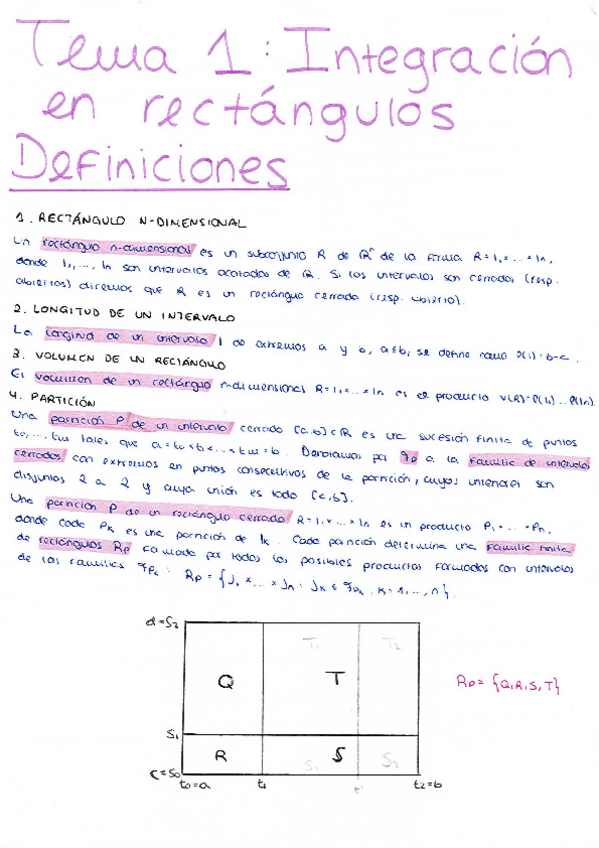 Tema 1: Integración
en rectángulos
Definiciones
1. RECTÁNGULO N-DIMENSIONAL
Un rectángulo n-dimensional es un subconjunto R de ℝⁿ de la forma R = I₁×...×Iₙ,
donde I₁,..., Iₙ son intervalos acotados de ℝ. Si los intervalos son cerrados (resp.
abiertos) diremos que R es un rectángulo cerrado (resp. abierto).
2. LONGITUD DE UN INTERVALO
La longitud de un intervalo I de extremos a y b, a≤b, se define como l(I)=b-a.
3. VOLUMEN DE UN RECTÁNGULO
El volumen de un rectángulo n-dimensional R=I₁×...×Iₙ es el producto v(R)=l(I₁)...l(Iₙ).
4. PARTICIÓN
Una partición P de un intervalo cerrado [a,b]⊂ℝ es una sucesión finita de puntos
t₀,...,tₘ tales que a=t₀<t₁<...<tₘ=b. Denotamos por ℱp a la familia de intervalos
cerrados con extremos en puntos consecutivos de la partición, cuyos interiores son
disjuntos 2 a 2 y cuya unión es todo [a,b].
Una partición P de un rectángulo cerrado R=I₁×...×Iₙ es un producto P₁×...×Pₙ,
donde cada Pₖ es una partición de Iₖ. Cada partición determina una familia finita
de rectángulos Rp formada por todos los posibles productos formados con intervalos
de las familias ℱpₖ: Rp = {J₁×...×Jₙ : Jₖ ∈ ℱpₖ, k=1,...,n}.
d=S₂
T₁ T₂
Q T
Rp = {Q,R,S,T}
S₁
R S
S₁ S₂
c=S₀
t₀=a t₁ t' t₂=b